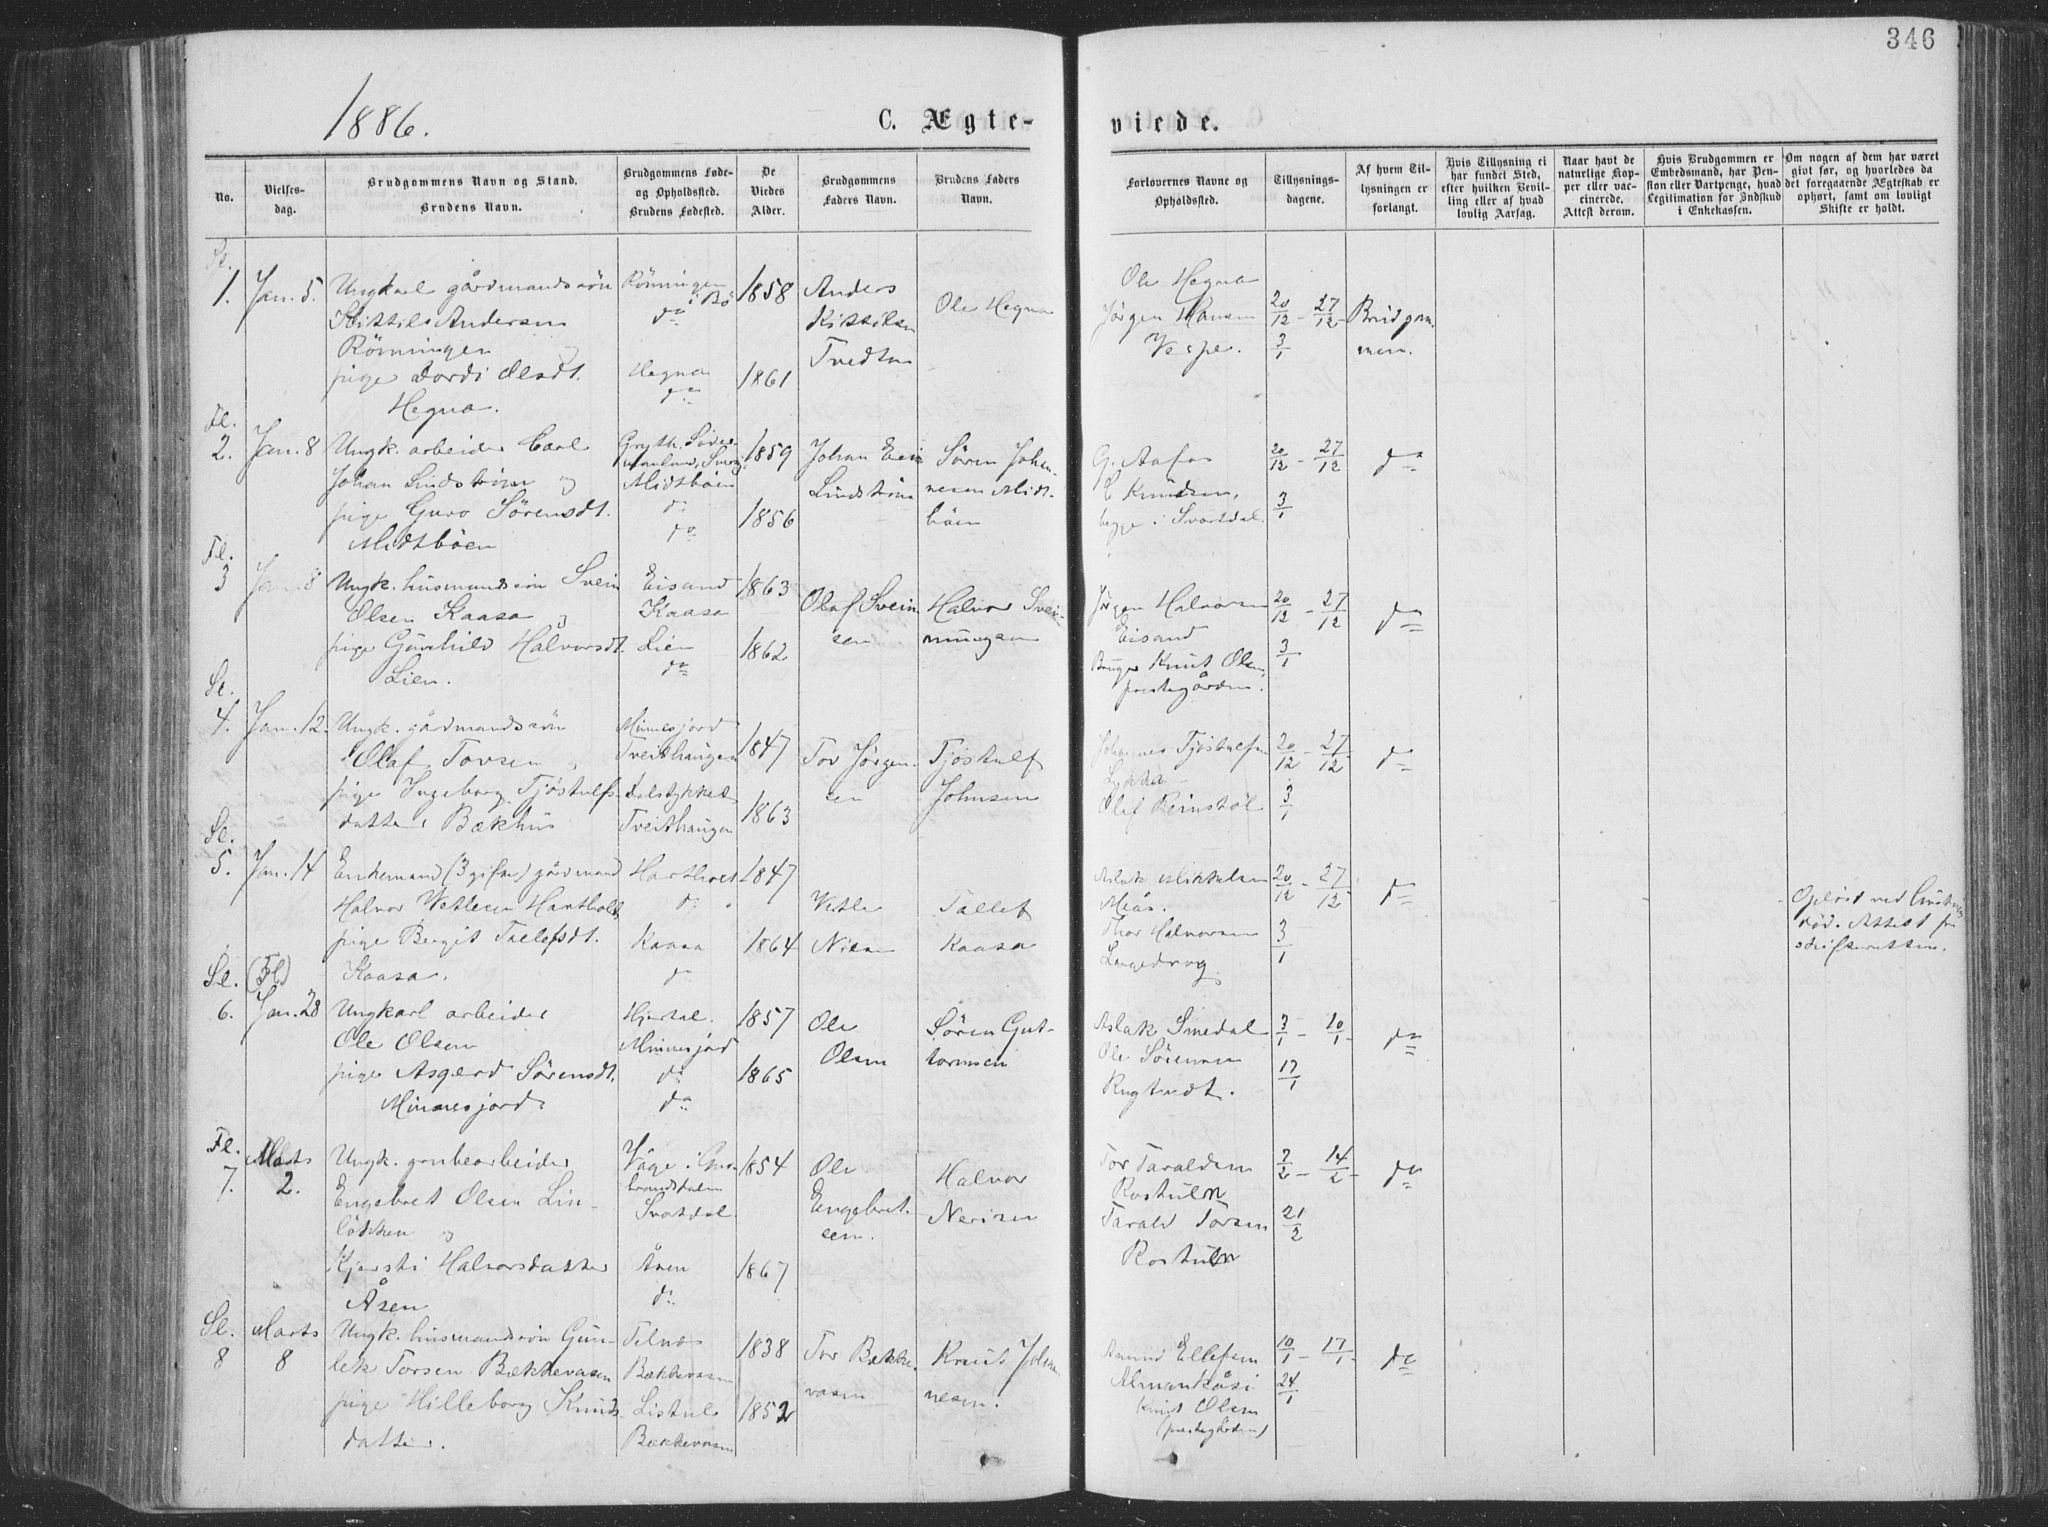 346
1886.
C. Ægte-
viede.
No.
Vielses-
dag.
Brudgommens Navn og Stand.
Brudens Navn.
Brudgommens Føde-
og Opholdssted.
Brudens Fødested.
De
Viedes
Alder.
Brudgommens
Faders Navn.
Brudens Faders
Navn.
Forlovernes Navne og
Opholdssted.
Tillysnings-
dagene.
Af hvem Til-
lysningen er
forlangt.
Hvis Tillysning ei
har fundet Sted,
efter hvilken Bevil-
ling eller af hvad
lovlig Aarsag.
Naar havt de
naturlige Kop-
per eller vac-
cinerede.
Attest derom.
Hvis Brudgommen er
Embedsmand, har Pen-
sion eller Vartpenge, hvad
Legitimation for Indskud
i Enkekassen.
Om nogen af dem har været
givt før, og hvorledes da
det foregaaende Ægteskab er
ophørt, samt om lovligt
Skifte er holdt.
1. Jan. 5.
Ungkarl gårdmandssön
Kittil Andersen
Rönningen
pige Dordi Olsdt.
Hegna.
Rönningen
i Bö
do
Hegna
do
1858
1861
Anders
Kittilsen
Tvedten
Ole Hegna
Ole Hegna
Jörgen Hansen
Vespe.
20/12 - 27/12 -
3/1
Brudgom-
men.
Fl.
2. Jan. 8
Ungk. arbeider Carl
Johan Lindström og
pige Guro Sörensdt.
Midtböen
Gryth. Söder-
manland, Sverig.
Midtböen
do
do
1859
1856
Johan Eric
Lindström
Sören Johan-
nesen Midt-
böen
G. Aafos
Knudsen,
begge i Svartdal.
20/12 - 27/12
3/1
do
Fl.
3 Jan. 8
Ungk. husmandssön Svein
Olsen Kaasa og
pige Gunhild Halvorsdt.
Lien.
Eisand
Kaasa
Lien
do
1863
1862
Olaf Svein
sen
Halvor Svei-
nungsen
Jörgen Halvorsen
Eisand
Knut Olsen,
prestegården.
20/12 - 27/12
3/1
do
Sl.
4. Jan. 12.
Ungk. gårdmandssön
Olaf Torsen
pige Ingeborg Tjöstulfs-
datter Bækhus
Minnesjord
Tveithaugen
Dalstykket
Tveithaugen
1847
1863
Tor Jörgen-
sen
Tjöstulf
Johnsen
Johannes Tjöstulfsen
Lykkja
Olef Reinstöl
20/12 - 27/12
3/1
do
Sl.
5. Jan. 14
Enkemand (3 gifte) gårdmand
Halvor Vetlesen Harthol
pige Bergit Tallefsdt.
Kaasa.
do
Kaasa
do
1847
1864
Vetle
Nilsen
Tallef
Kaasa
Aslak Mikkelsen
Meås.
Thor Halvorsen
Langedrag
20/12 - 27/12 -
3/1
do
Oplöst ved hustruens
död. Attest fra
skifteretten.
Sl. (Fl)
6. Jan. 28
Ungkarl arbeider
Ole Olsen
pige Asgerd Sörensdt.
Minnesjord
Hjerdal.
Minnesjord
do
do
1857
1865
Ole
Olsen
Sören Gut-
tormsen
Aslak Smedal
Ole Sörensen
Rugtvedt.
3/1 - 10/1 -
17/1
do
Fl.
7. Marts
2.
Ungk. grubearbeider
Engebret Olsen Lin-
lökken og
Kjersti Halvorsdatter
Åsen
Våge i Gud-
brandsdalen
Svatdal.
Åsen
do
1854
1867
Ole
Engebret-
sen.
Halvor
Nerisen
Tor Taraldsen
Rostulen
Tarald Torsen
Rostulen
7/2 - 14/2 -
21/2
do
Sl.
8
Marts
8
Ungk. husmandssön Gun-
lek Torsen Bækkevasen
pige Hilleborg Knuds-
datter.
Telnes
Bækkevasen
Listul
Bækkevasen
1838
1852
Tor Bække-
vasen
Knut Johan-
nesen.
Amund Ellefsen
Almankåsi
Knut Olsen
(prestegården)
10/1 - 17/1 -
24/1
do